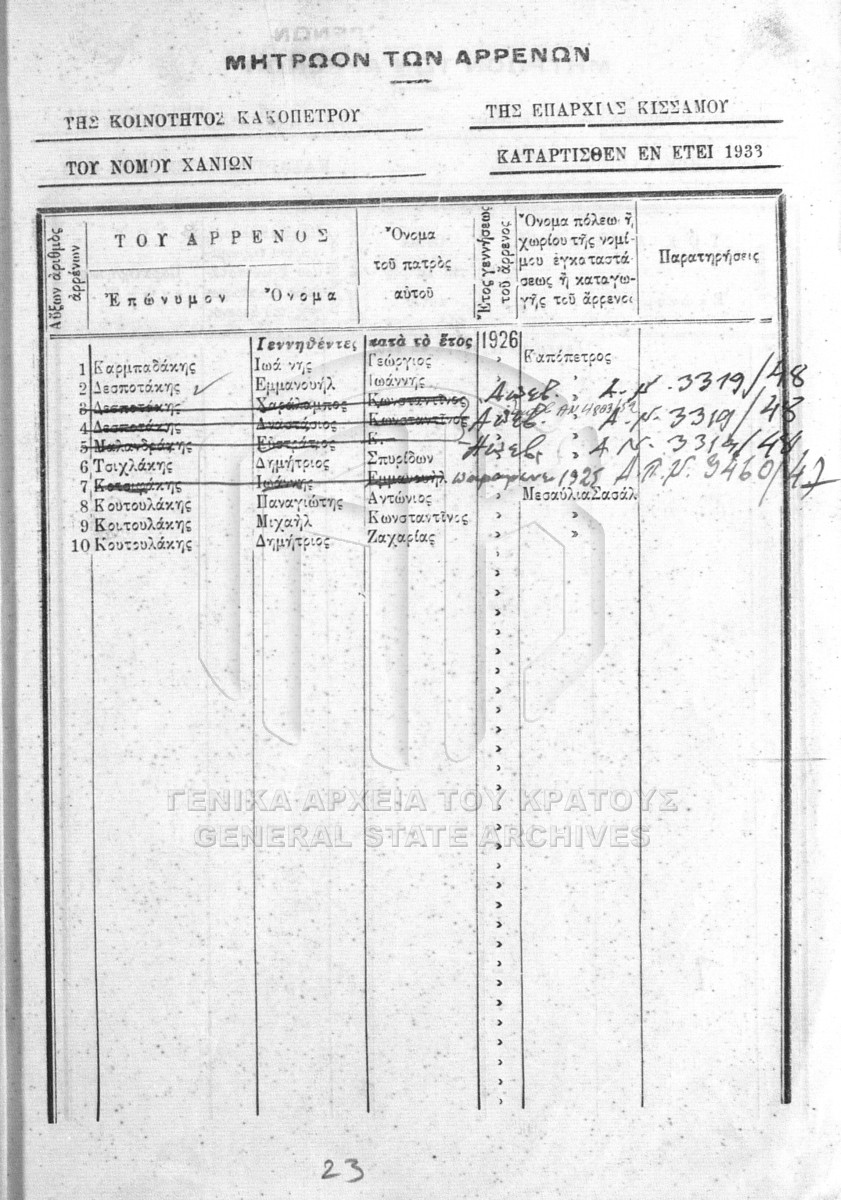 ΜΗΤΡΩΟΝ ΤΩΝ ΑΡΡΕΝΩΝ
ΤΗΣ ΚΟΙΝΟΤΗΤΟΣ ΚΑΚΟΠΕΤΡΟΥ
ΤΗΣ ΕΠΑΡΧΙΑΣ ΚΙΣΣΑΜΟΥ
ΤΟΥ ΝΟΜΟΥ ΧΑΝΙΩΝ
ΚΑΤΑΡΤΙΣΘΕΝ ΕΝ ΕΤΕΙ 1933
Αὔξων ἀριθμὸς ἀρρένων
ΤΟΥ ΑΡΡΕΝΟΣ
Ἐπώνυμον
Ὄνομα
Ὄνομα
τοῦ πατρὸς
αὐτοῦ
Ἔτος γεννήσεως
τοῦ ἄρρενος
Ὄνομα πόλεω ἤ
χωρίου τῆς νομί
μου ἐγκαταστά
σεως ἤ καταγω
γῆς τοῦ ἄρρενοι
Παρατηρήσεις
Γεννηθέντες κατὰ τὸ ἔτος 1926
1 Καρμπαδάκης Ἰωά νης Γεώργιος » Κακόπετρος
2 Δεσποτάκης Ἐμμανουήλ Ἰωάννης » »
3 Δεσποτάκης Χαράλαμπος Κωνσταντῖνος Α.Ν. 3319/48
4 Δεσποτάκης Ἀναστάσιος Κωνσταντῖνος Α.Ν. 3319/48
5 Μαλανδράκης Εὐστράτιος Κ. Α Ν. 3319/48
6 Τσιχλάκης Δημήτριος Σπυρίδων
7 Κοτσιφάκης Ἰωάννης Ἐμμανουὴλ 1925 9460/47
8 Κουτουλάκης Παναγιώτης Ἀντώνιος » Μεσαύλια Σασάλ
9 Κοιτουλάκης Μιχαὴλ Κωνσταντῖνος » »
10 Κουτουλάκης Δημήτριος Ζαχαρίας » »
ΓΕΝΙΚΑ ΑΡΧΕΙΑ ΤΟΥ ΚΡΑΤΟΥΣ
GENERAL STATE ARCHIVES
23